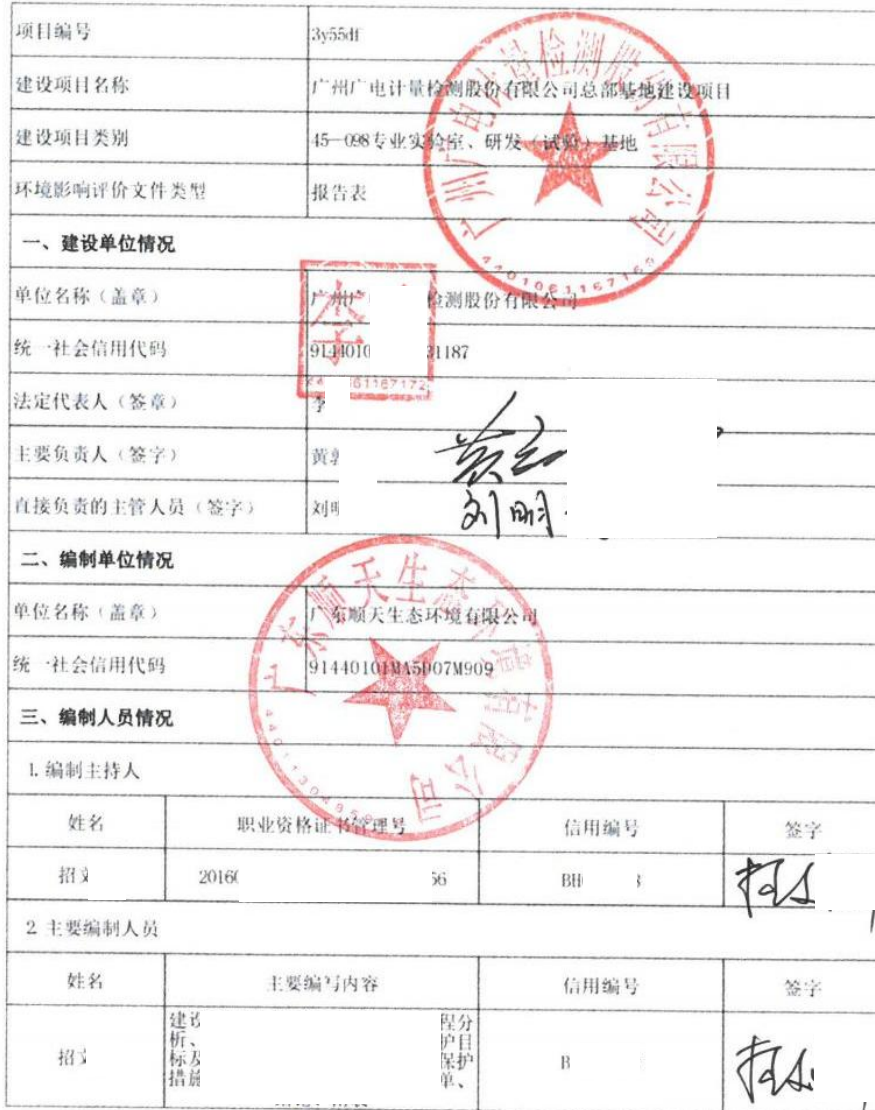 项目编号 3y55df
建设项目名称 广州广电计量检测股份有限公司总部基地建设项目
建设项目类别 45—098专业实验室、研发（试验）基地
环境影响评价文件类型 报告表
一、建设单位情况
单位名称（盖章） 广州广 检测股份有限公司
统一社会信用代码 9144010 31187
法定代表人（签章） 李
主要负责人（签字） 黄
直接负责的主管人员（签字） 刘明 刘明
二、编制单位情况
单位名称（盖章） 广东顺天生态环境有限公司
统一社会信用代码 91440101MA5D07M909
三、编制人员情况
1.编制主持人
姓名 职业资格证书管理号 信用编号 签字
招文 2016 56 BH
2 主要编制人员
姓名 主要编写内容 信用编号 签字
招文 建设 程分 B
析、 护目
标及 保护
措施 单、
广州广电计量检测股份有限公司
4401061167169
李
61167172
广东顺天生态环境有限公司